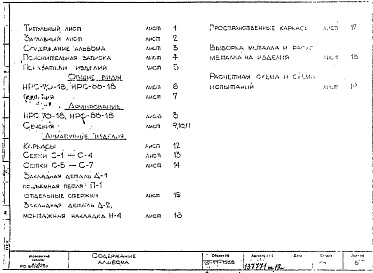 Титульный лист лист 1
Заглавный лист лист 2
Содержание альбома лист 3
Пояснительная записка лист 4
Показатели изделий лист 5
Общие виды
НРС-70-18, НРС-88-18 лист 6
лист 7
Армирование
НРС 70-18, НРС-88-18 лист 8
Сечения лист 9,10,11
Арматурные изделия
Каркасы лист 12
Сетки С-1 — С-4 лист 13
Сетки С-5 — С-7 лист 14
Закладная деталь Д-1
подъемная петля П-1
отдельные стержни лист 15
Закладная деталь Д-2,
монтажная накладка Н-4 лист 16
Пространственные каркасы лист 17
Выборка металла и расход
металла на изделия лист 18
Расчетная схема и схема
испытаний лист 19
Содержание
альбома